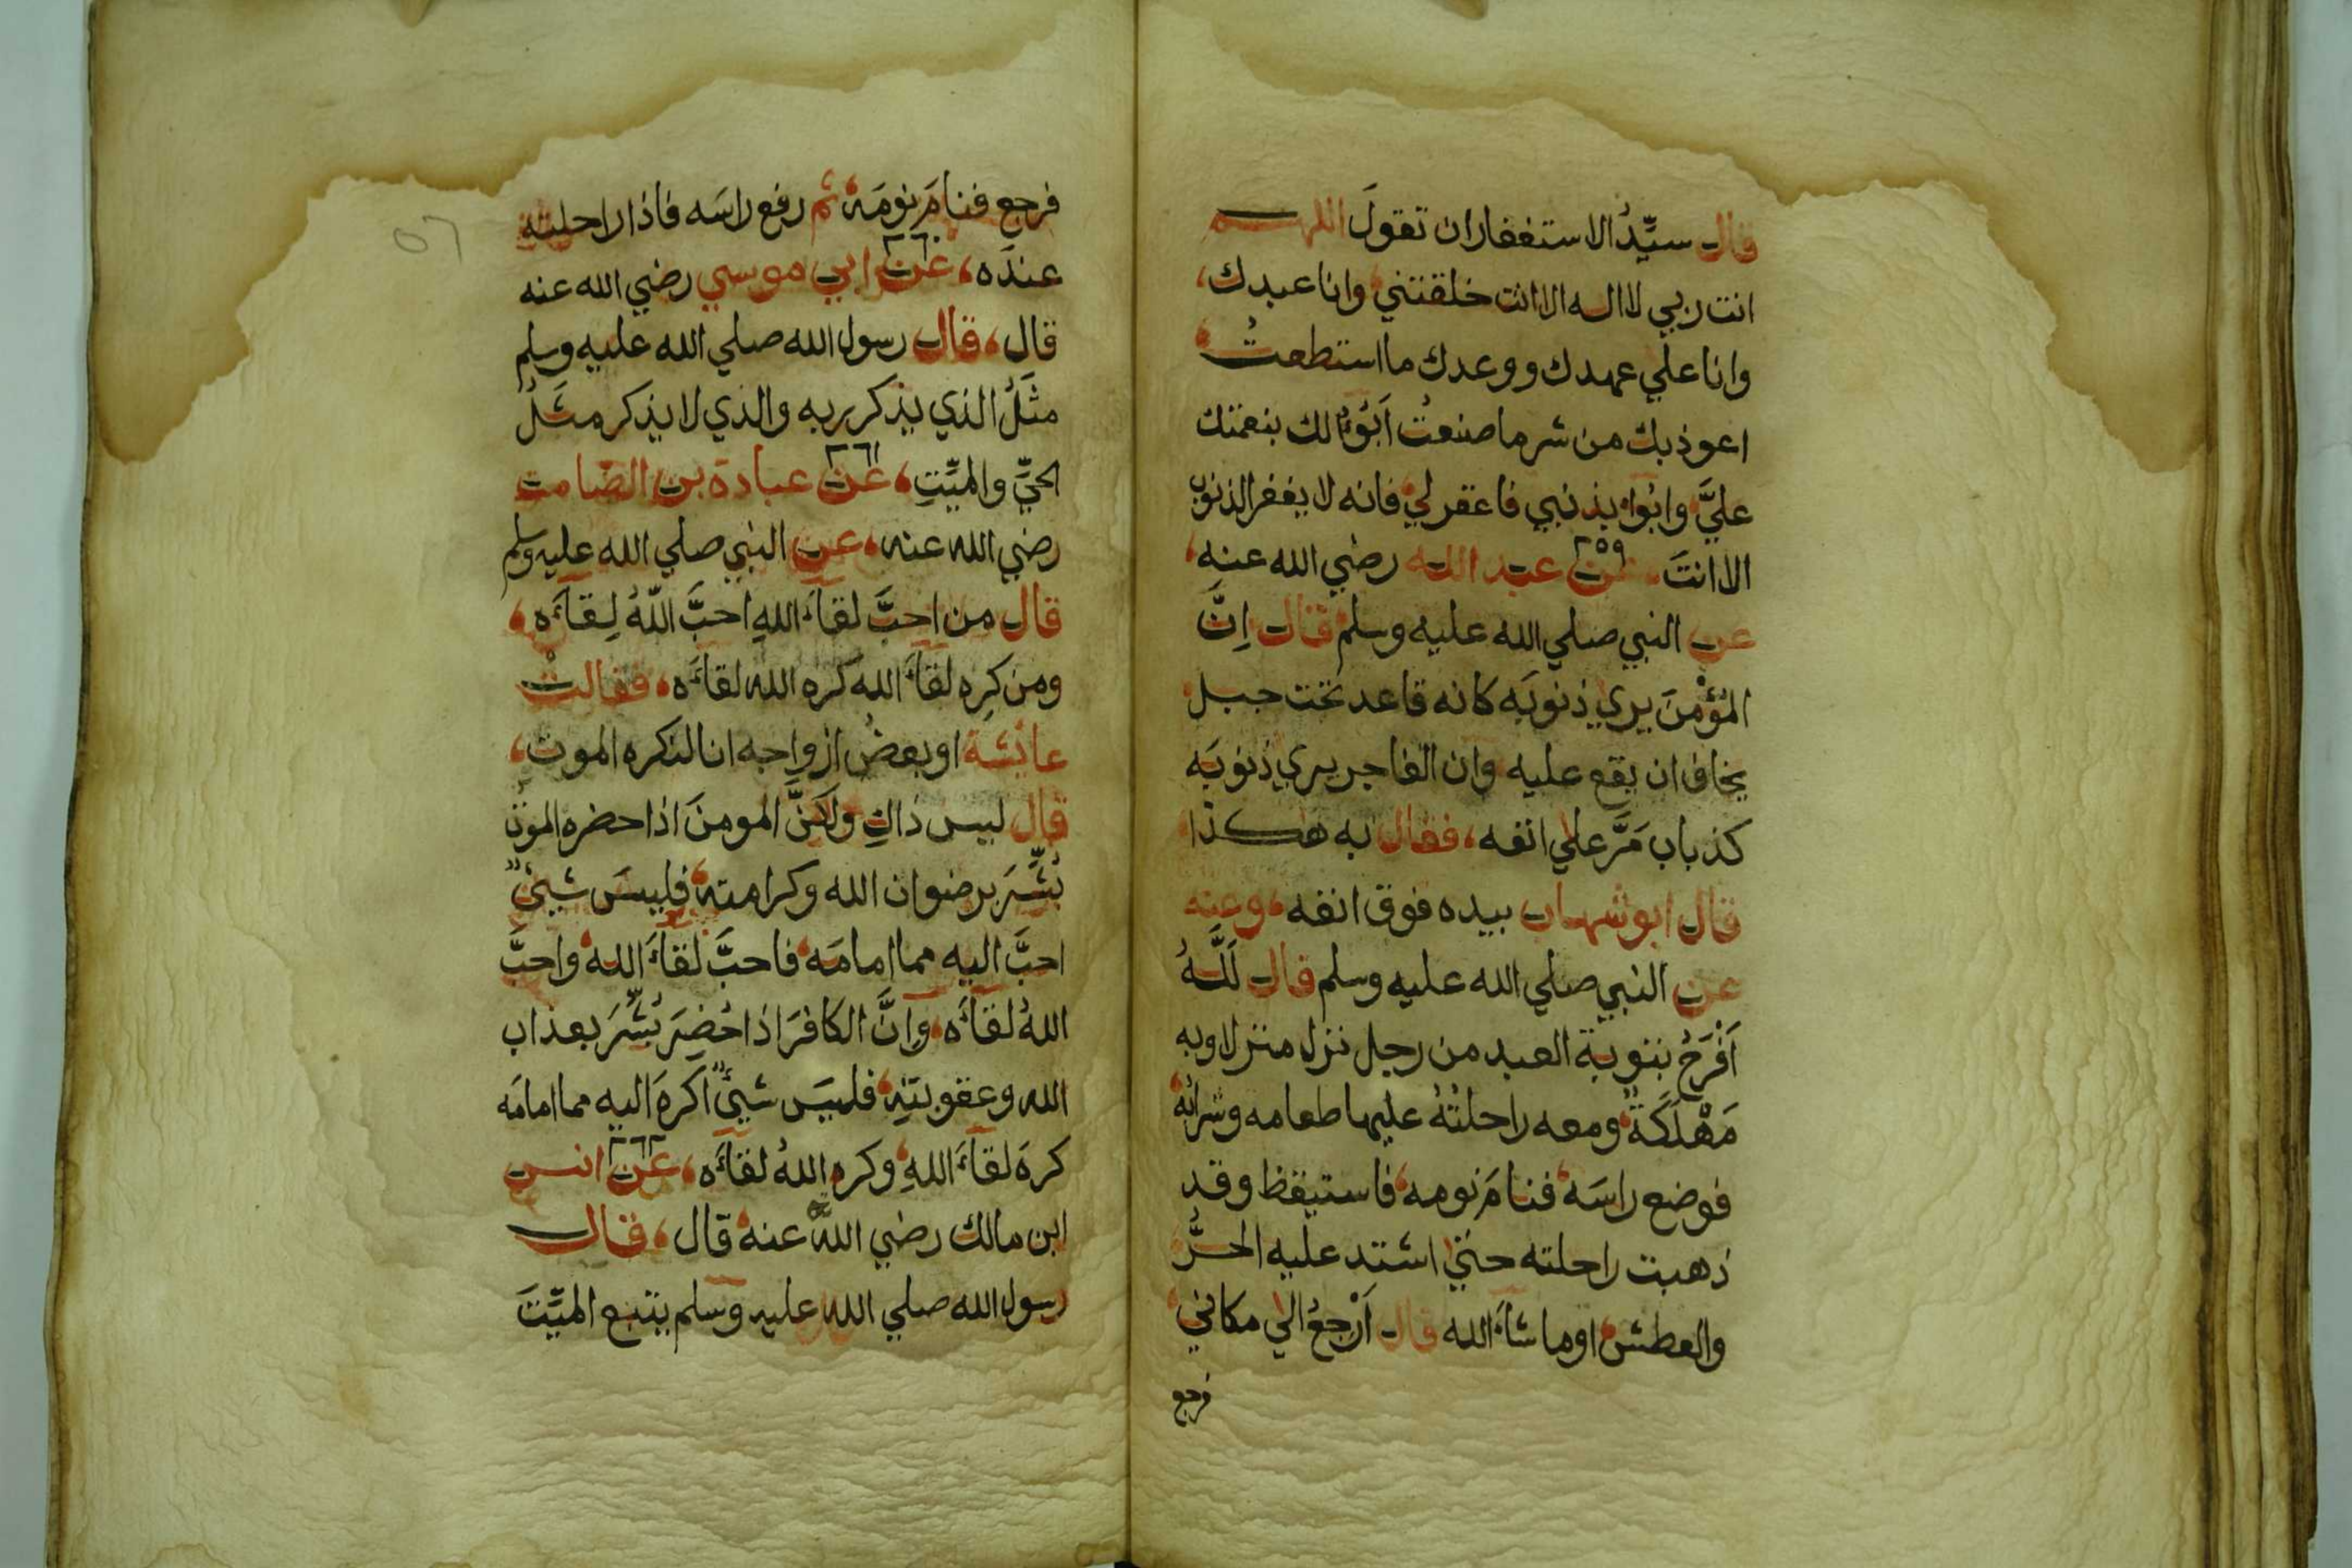 قال سيِّدُ الاستغفار ان تقولَ اللهم
انت ربي لا اله الا انت خلقتني وانا عبدك،
وانا علي عهدك ووعدك ما استطعتُ
اعوذ بك من شر ما صنعتُ اَبُوْءُ لك بنعمتك
عليَّ وابُوْاء بذنبي فاغفر لي فانه لا يغفر الذنوب
الا انتَ عن عبد الله رضي الله عنه، ٢٥٩
عن النبي صلي الله عليه وسلم قال اِنَّ
المُؤْمِنَ يري ذنوبَه كانه قاعد تحت جبل
يخاف ان يقع عليه وان الفاجر يري ذنوبَه
كذباب مَرَّ علي انفه، فقال به هكذا
قال ابو شهاب بيده فوق انفه، وعنه
عن النبي صلي الله عليه وسلم قال لَلّٰهُ
اَفْرَحُ بتوبة العبد من رجل نزل منزلا وبه
مَهْلَكَةٌ، ومعه راحلتُهُ عليها طعامه وشرابُهُ
فوضع راسَه، فنامَ نومه، فاستيقظ وقد
ذهبت راحلته حتي اشتد عليه الحرُّ
والعطش، اوما شآءَ الله قال اَرْجعُ الي مكاني،
فرجع
٥٦
فرجع فنامَ نومَة، ثم رفع راسَه فاذا راحلته
عندَه، عن ابي موسي رضي الله عنه ٢٦٠
قال، قال رسول الله صلي الله عليه وسلم
مثَلُ الذي يذكر ربه والذي لا يذكر مثَلُ
الحيِّ والميِّتِ، عن عبادة بن الصامت ٢٦١
رضي الله عنه، عن النبي صلي الله عليه وسلم
قال من احبَّ لقآءَ اللهِ احبَّ اللهُ لِقآءَه،
ومن كرِه لقآءَ الله كره الله لقآءَه، فقالت
عايشة او بعضُ ازواجه انا لنكره الموت،
قال ليس ذاكِ ولكنَّ المومنَ اذا حضره الموت
بُشِّرَ برضوان الله وكرامته، فليسَ شيئٌ
احبَّ اليه مما امامَه، فاحبَّ لقآءَ الله، واحبَّ
اللهُ لقآءَه، وانَّ الكافرَ اذا حُضِرَ بُشِّرَ بعذاب
الله وعقوبتِهِ، فليسَ شيئٌ اَكرهَ اليه مما امامَه
كرهَ لقآءَ اللهِ، وكره اللهُ لقآءَه، عن انس ٢٦٢
ابن مالك رضي الله عنه، قال، قال
رسول الله صلي الله عليه وسلم يتبع الميِّتَ